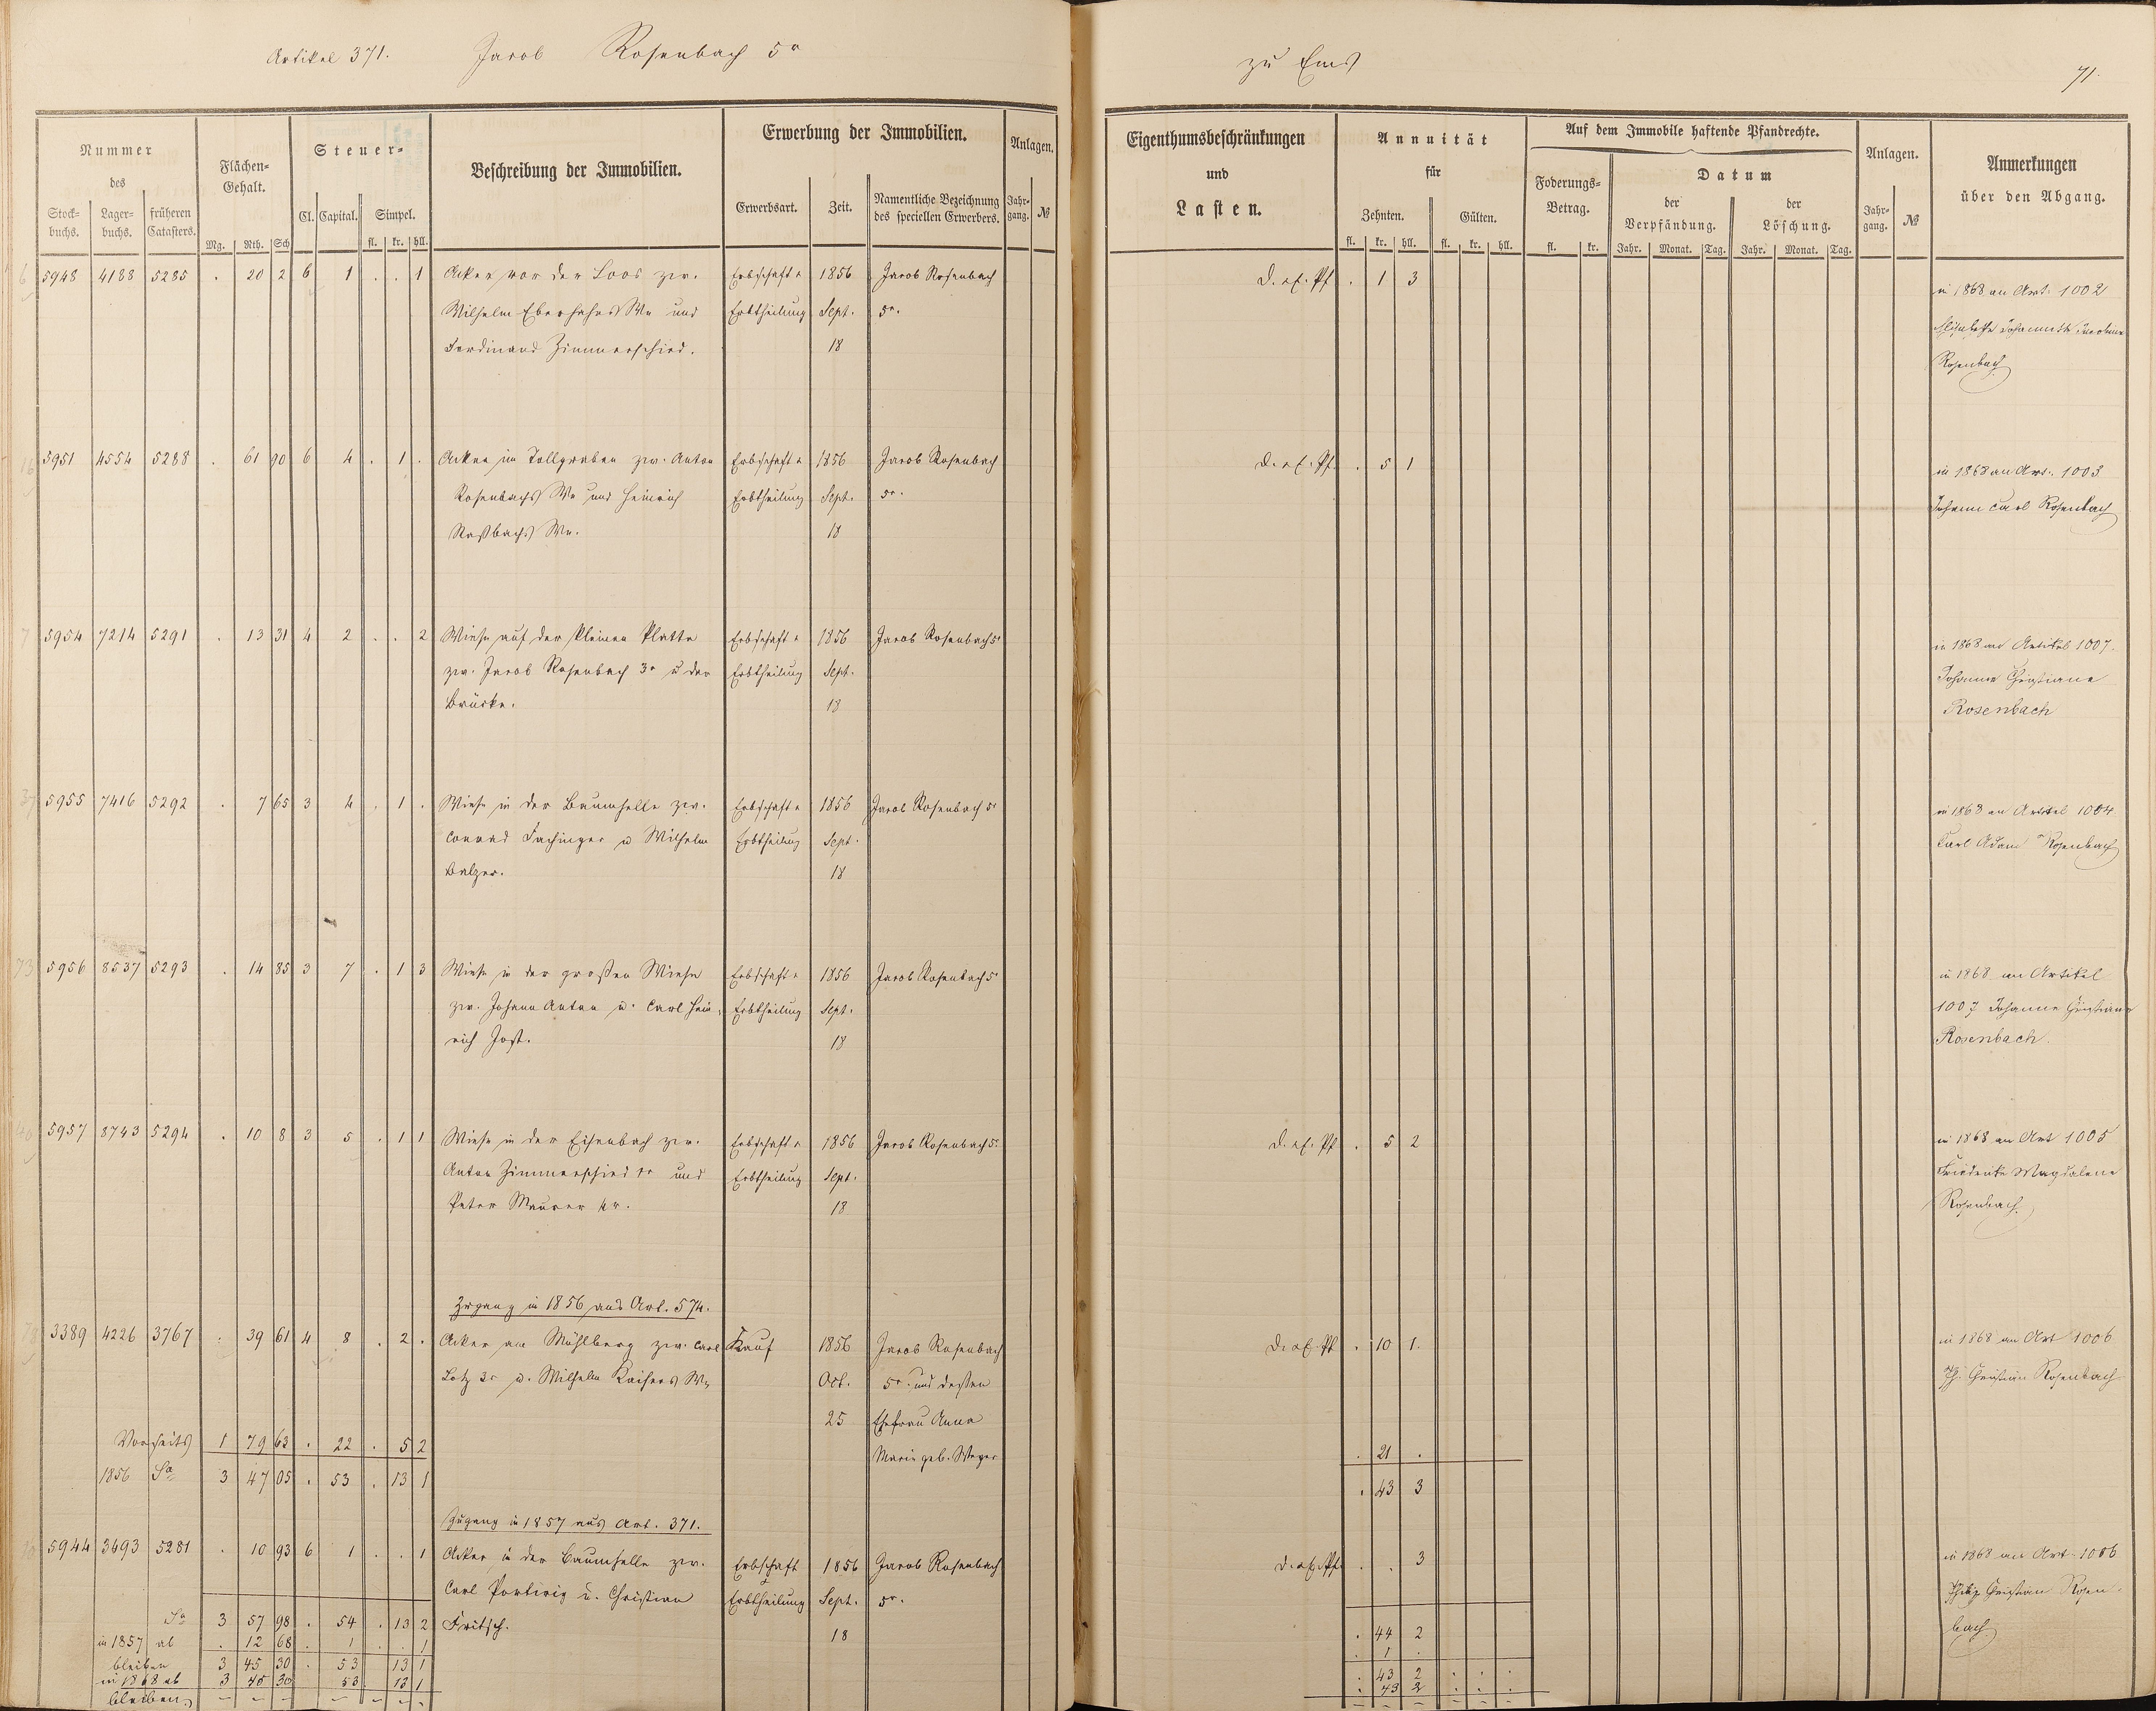 Artikel 371. Jacob Rosenbach 5r
zu Ems
71.
Nummer des
Stockbuchs. Lagerbuchs. früheren Catasters.
Flächen-Gehalt.
Mg. Rth. Sch
Steuer-
Cl. Capital. Simpel.
fl. kr. hll.
Beschreibung der Immobilien.
Erwerbung der Immobilien.
Erwerbsart. Zeit. Namentliche Bezeichnung des speciellen Erwerbers.
Anlagen.
Jahrgang. №
Eigenthumsbeschränkungen und Lasten.
Annuität für
Zehnten. Gülten.
fl. kr. hll. fl. kr. hll.
Auf dem Immobile haftende Pfandrechte.
Foderungs-Betrag.
fl. kr.
Datum
der Verpfändung. der Löschung.
Jahr. Monat. Tag. Jahr. Monat. Tag.
Anlagen.
Jahrgang. №
Anmerkungen über den Abgang.
5948 4188 5285 . 20 2 6 1 . . 1 Acker vor der Loos zw. Erbschaft u 1856 Jacob Rosenbach . 1 3 in 1868 an Art. 1002
Wilhelm Eberhahns We und Erbtheilung Sept. 5r. Johannette
Ferdinand Zimmerschied. 18 Rosenbach
5951 4554 5288 . 61 90 6 4 . 1 . Acker im Tollgraben zw. Anton Erbschaft u 1856 Jacob Rosenbach . 5 1 in 1868 an Art. 1003
Rosenbachs We und Heinrich Erbtheilung Sept. 5r. Johann Carl Rosenbach
Roßbachs We. 18
5954 7214 5291 . 13 31 4 2 . . 2 Wiese auf der kleinen Platte Erbschaft u 1856 Jacob Rosenbach 5r in 1868 an Artikel 1007.
zw. Jacob Rosenbach 3r u der Erbtheilung Sept. Johanne Christiane
Brücke. 18 Rosenbach
5955 7416 5292 . 7 65 3 4 . 1 . Wiese in der Baumhelle zw. Erbschaft u 1856 Jacob Rosenbach 5r in 1868 an Artikel 1004
Conrad Fachinger u Wilhelm Erbtheilung Sept. Carl Adam Rosenbach
Balzer. 18
5956 8537 5293 . 14 85 3 7 . 1 3 Wiese in der großen Wiese Erbschaft u 1856 Jacob Rosenbach 5r in 1868 an Artikel
zw. Johann Anton u. Carl Hein- Erbtheilung Sept. 1007 Johanne Christiane
rich Jost. 18 Rosenbach.
5957 8743 5294 . 10 8 3 5 . 1 1 Wiese in der Eisenbach zw. Erbschaft u 1856 Jacob Rosenbach 5r. . 5 2 in 1868 an Art 1005
Anton Zimmerschied und Erbtheilung Sept. Friederike Magdalene
Peter Maurer 18 Rosenbach.
Zugang in 1856 aus Art. 574.
3389 4226 3767 . 39 61 4 8 . 2 . Acker am Mühlberg zw. Carl Kauf 1856 Jacob Rosenbach . 10 1. in 1868 an Art 1006
Lotz 3r u. Wilhelm Kaisers We Oct. 5r. und dessen Ph. Christian Rosenbach
25 Ehefrau Anna
Vorseits 1 79 63 . 22 . 5 2 Marie geb. . 21 .
1856 Sa 3 47 05 . 53 . 13 1 . 43 3
Zugang in 1857 aus Art. 371.
5944 3693 5281 . 10 93 6 1 . . 1 Acker in der Baumhelle zw. Erbschaft 1856 Jacob Rosenbach . . 3 in 1868 an Art. 1006
Carl u. Christian Erbtheilung Sept. 5r. Philip Christian Rosen-
Sa 3 57 98 . 54 . 13 2 Fritsch. 18 . 44 2 bach
in 1857 ab . 12 68 . 1 . . 1 . 1 .
bleiben 3 45 30 . 53 13 1 . 43 2 . . .
in 1868 ab 3 45 30 53 13 1 . 43 2 . . .
bleiben.